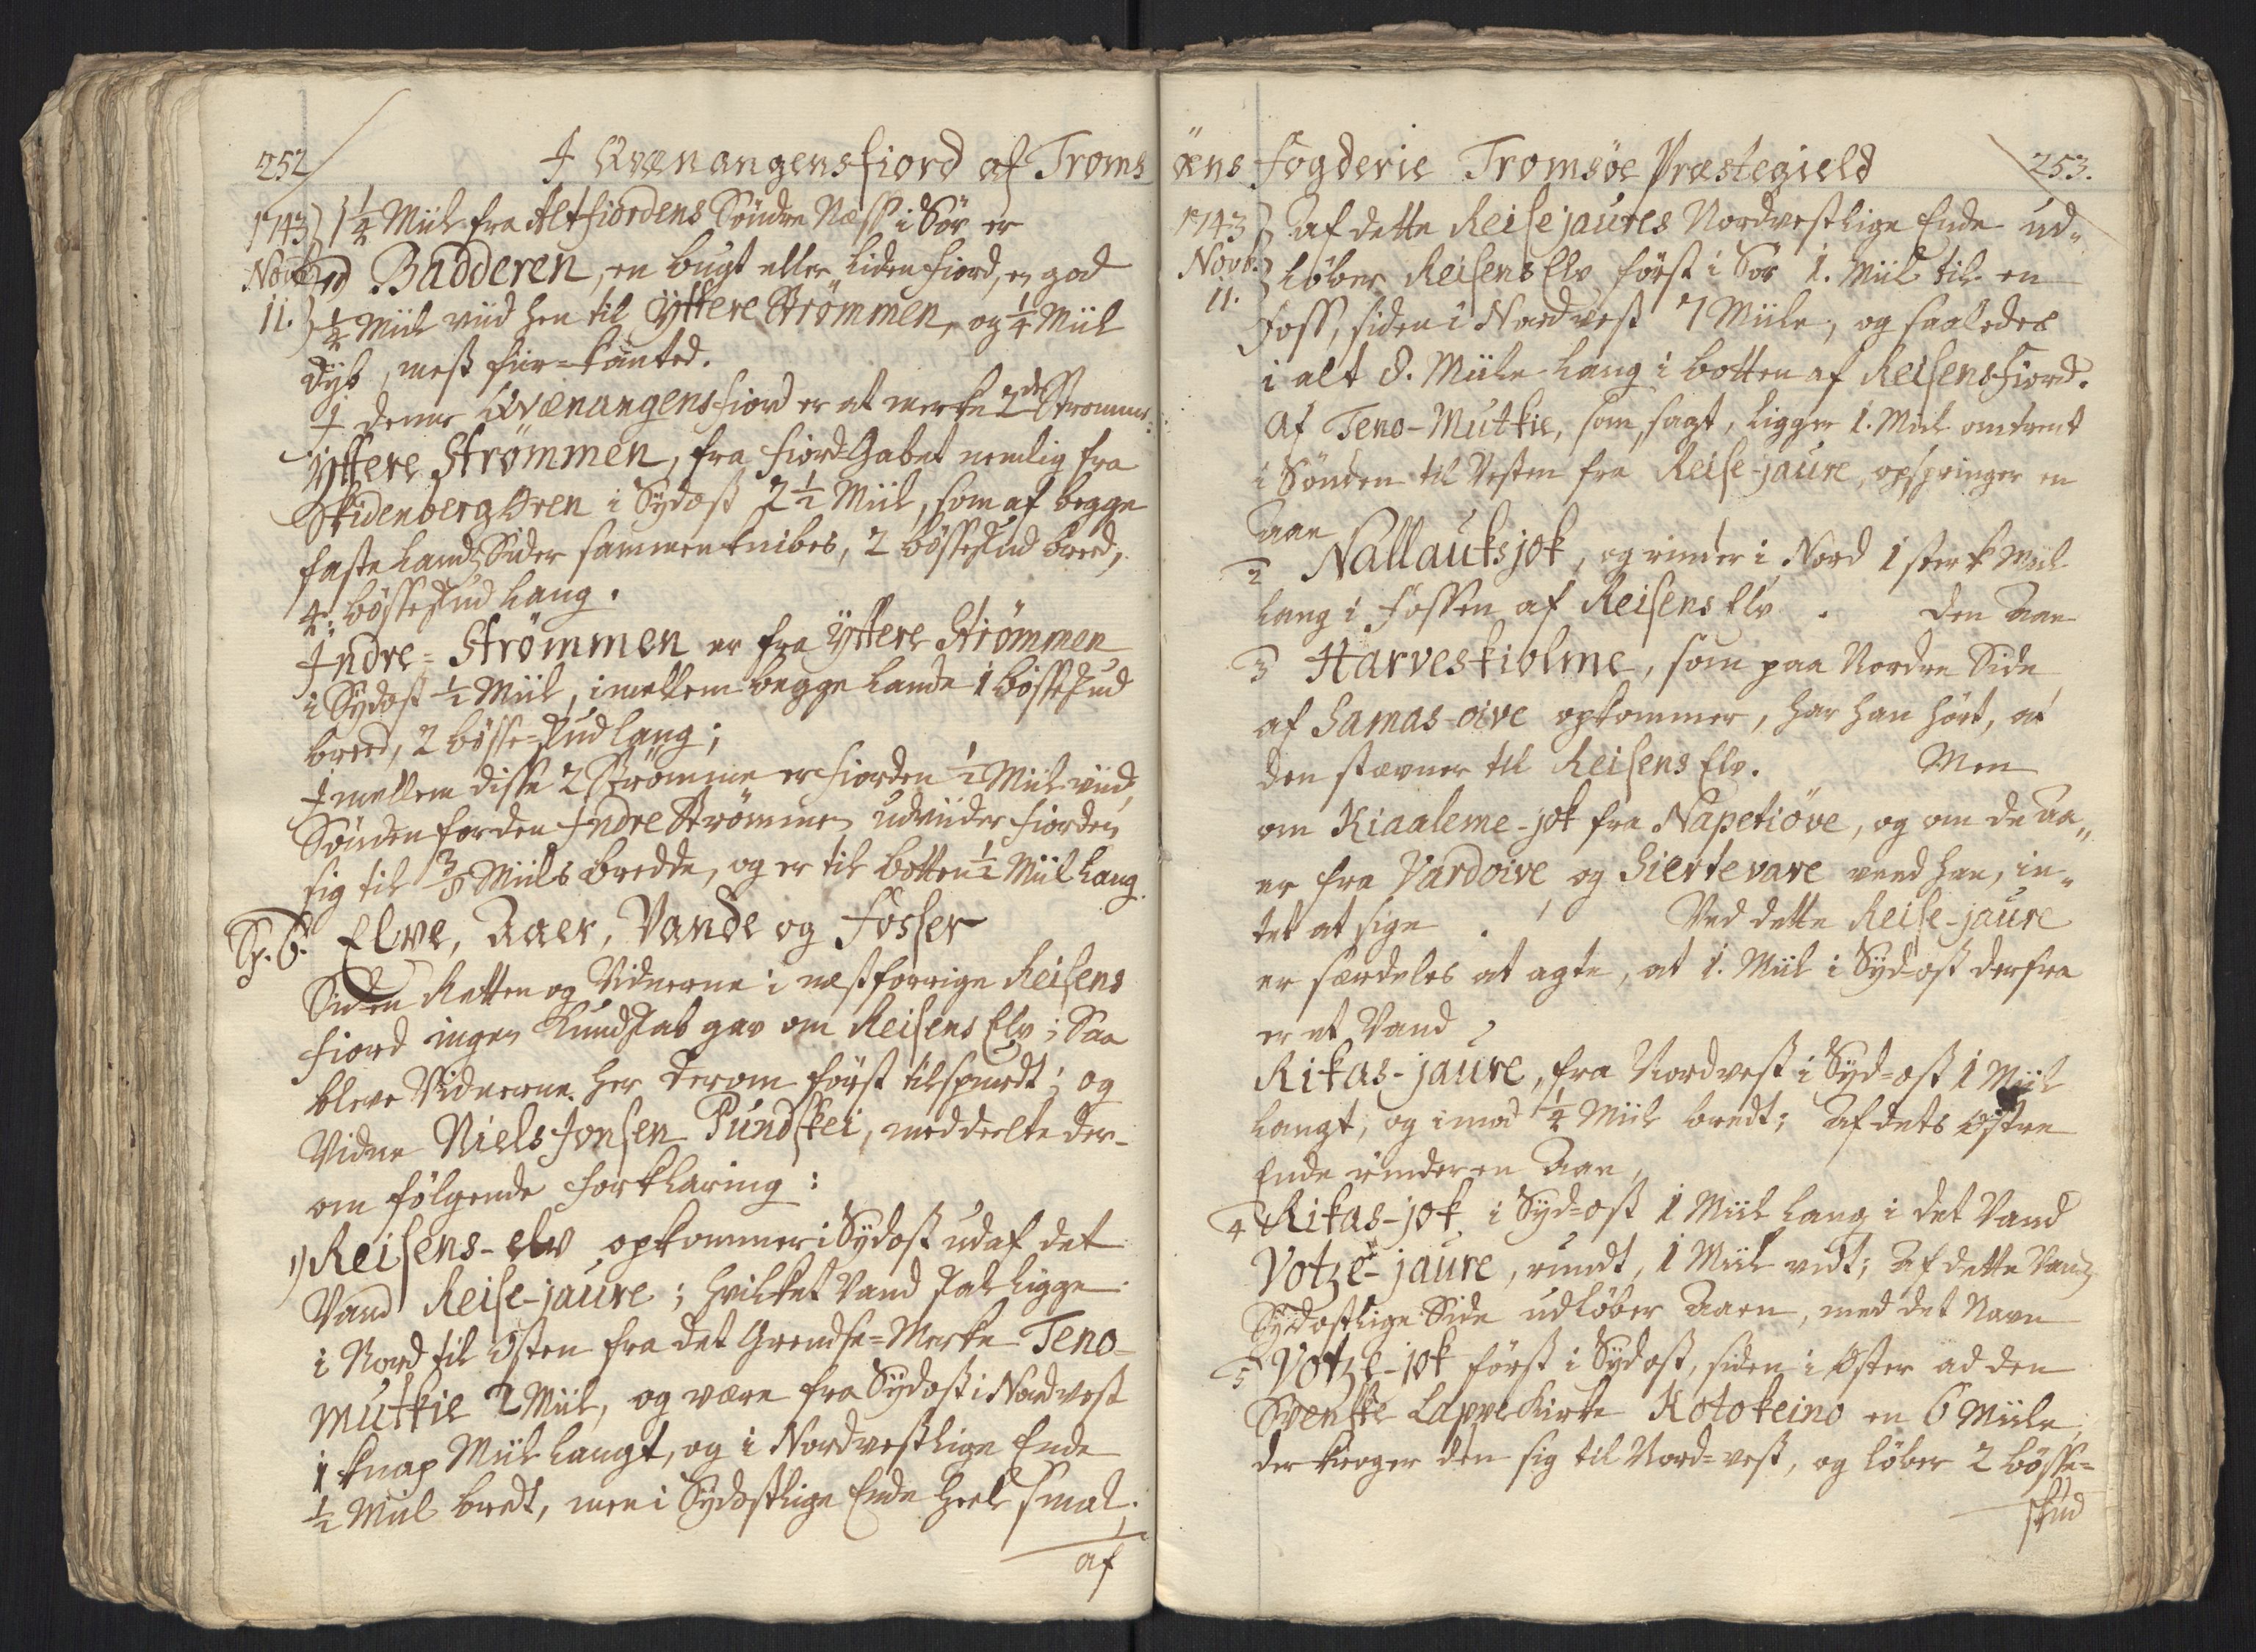 252
I Qvænangensfiord af Troms
1743) 1 1/4 Miil fra Altfiordens Søndre Næss i Sør er
Novb. Badderen, en bugt eller liden fiord, en god
11.) 1/4 Miil viid hen til Yttere Strømmen, og 1/4 Miil
dÿb, mest fiir-kanted.
I denne Qvænangensfiord er at merke 2de Strømme:
Yttere Strømmen, fra fiord-Gabet nemlig fra
SkidenbergØren i Sydost 2 1/2 Miil, som af begge
faste Lands Sider sammenknibes, 2 bøsseskud breed,
4. bøsseskud lang.
Indre-Strømmen er fra Yttere Strømmen
i Sydost 1/2 Miil, imellem begge Lande 1 bøsseskud
breed, 2 bøsse-skud lang;
Imellem disse 2 Strømme er fiorden 1/2 Miil viid,
Sønden for den Indre Strømmen udviider fiorden
sig til 3/8 Miils bredde, og er til botten 1/2 Miil lang.
Sp. 6. Elve, Aaer, Vande og Fosser
Siden Retten og Vidnerne i næstforrige Reisens
fiord ingen Kundskab gav om Reisens Elv; Saa
bleve Vidnerne her derom først tilspurdt; og
Vidne Niels Jonsen Pundskei, meddeelte der-
om følgende forklaring:
1) Reisens-elv opkommer i Sydost udaf det
Vand Reise-jaure; hvilket Vand skal ligge
i Nord til Østen fra det Grendse-Merke Teno-
mutkie 2 Miil, og være fra Sydost i Nordvest
1 knap Miil langt, og i Nordvestlige Ende
1/2 Miil bredt, men i Sydostlige Ende heel smal;
af
øens Fogderie Tromsøe Præstegield
253.
1743 } af dette Reisejaures Nordvestlige Ende ud-
Novb. } løber Reisens Elv først i Sør 1. Miil til en
11.
Foss, siden i Nordvest 7 Miile, og saaledes
i alt 8. Miile lang i botten af Reisensfiord.
Af Teno-Mutkie, som sagt, ligger 1. Miil omtrent
i Sønden til Vesten fra Reise-jaure, opspringer en
Aae
2 Nallauksjok, og rinder i Nord 1 sterk Miil
lang i Fossen af Reisens Elv. Den Aae
3 Harveskiolme, som paa Nordre Side
af Samas-oive opkommer, har han hørt, at
den stævner til Reisens Elv. Men
om Kiaaleme-jok fra Napetiøve, og om de Aa-
er fra Vardoive og Siertevare veed han, in-
tet at sige. Ved dette Reise-jaure
er særdeles at agte, at 1. Miil i Syd-ost derfra
er et Vand,
Ritas-jaure, fra Nordvest i Syd-ost 1 Miil
langt, og imod 1/4 Miil bredt; Af dets østre
Ende rinder en Aae,
4 Ritas-jok i Syd-ost 1 Miil lang i det Vand
Votze-jaure, rundt, 1 Miil vidt; Af dette Vands
Sydostlige Side udløber Aaen, med det Navn
5 Votze-jok først i Sydost, siden i Øster ad den
Svenske Lappe Kirke Kotokeino en 6 Miile,
der kroger den sig til Nord-vest, og løber 2 bøsse-
skud